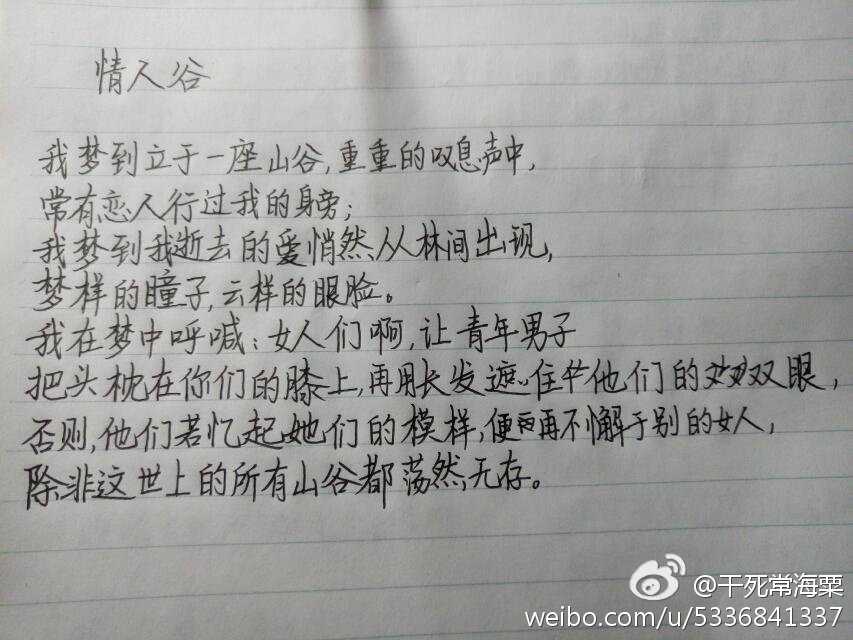 情人谷
我梦到立于一座山谷,重重的叹息声中,
常有恋人行过我的身旁;
我梦到我逝去的爱悄然从林间出现,
梦样的瞳子,云样的眼脸。
我在梦中呼喊:女人们啊,让青年男子
把头枕在你们的膝上,再用长发遮住他们的双眼,
否则,他们若忆起她们的模样,便再不懈于别的女人,
除非这世上的所有山谷都荡然无存。
@干死常海粟
weibo.com/u/5336841337